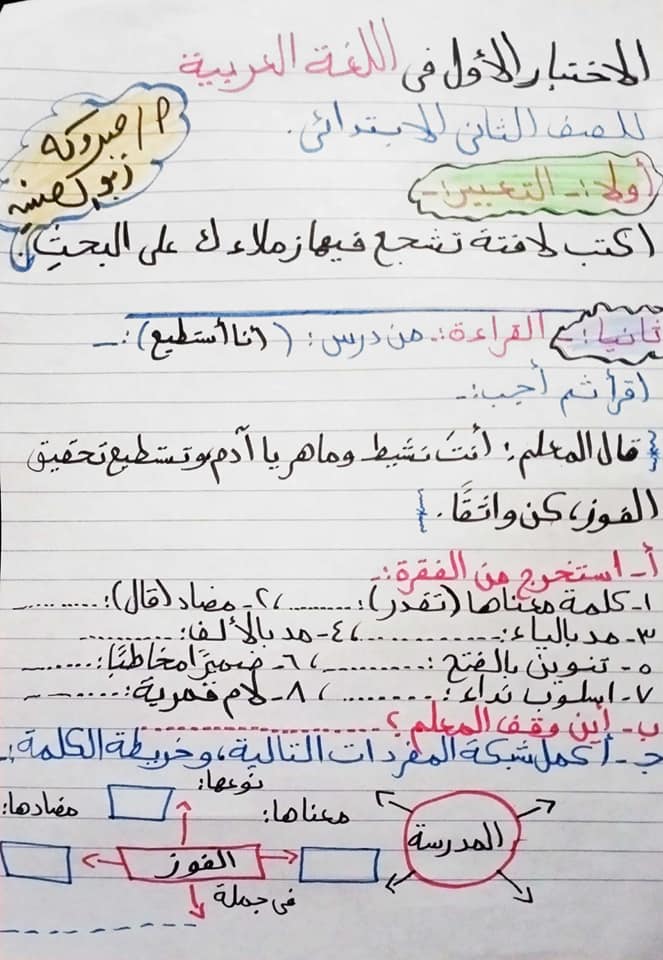 الاختبار الأول فى اللغة العربية
للصف الثانى الابتدائى.
م/ مبروكه
أولا:- التعبير:-
اكتب لافتة تشجع فيها زملاءك على البحثِ.
ثانيا:- القراءة:- من درس: (أنا أستطيع):-
اقرأ ثم أجب:-
{ قال المعلم: أنتَ نشيط وماهر يا آدم، وتستطيع تحقيق
الفوز، كن واثقًا. }
أ- استخرج من الفقرة:-
١- كلمة معناها (تقدر): ........، ٢- مضاد (قال): ........
٣- مد بالياء: ............، ٤- مد بالألف: ..........
٥- تنوين بالفتح: .........، ٦- ضميرًا مخاطبًا: ........
٧- اسلوب نداء: .........، ٨- لام قمرية: ........
ب- أين وقف المعلم؟ ....................
ج- أكمل شبكة المفردات التالية، وخريطة الكلمة:-
المدرسة
نوعها:
معناها:
مضادها:
الفوز
فى جملة